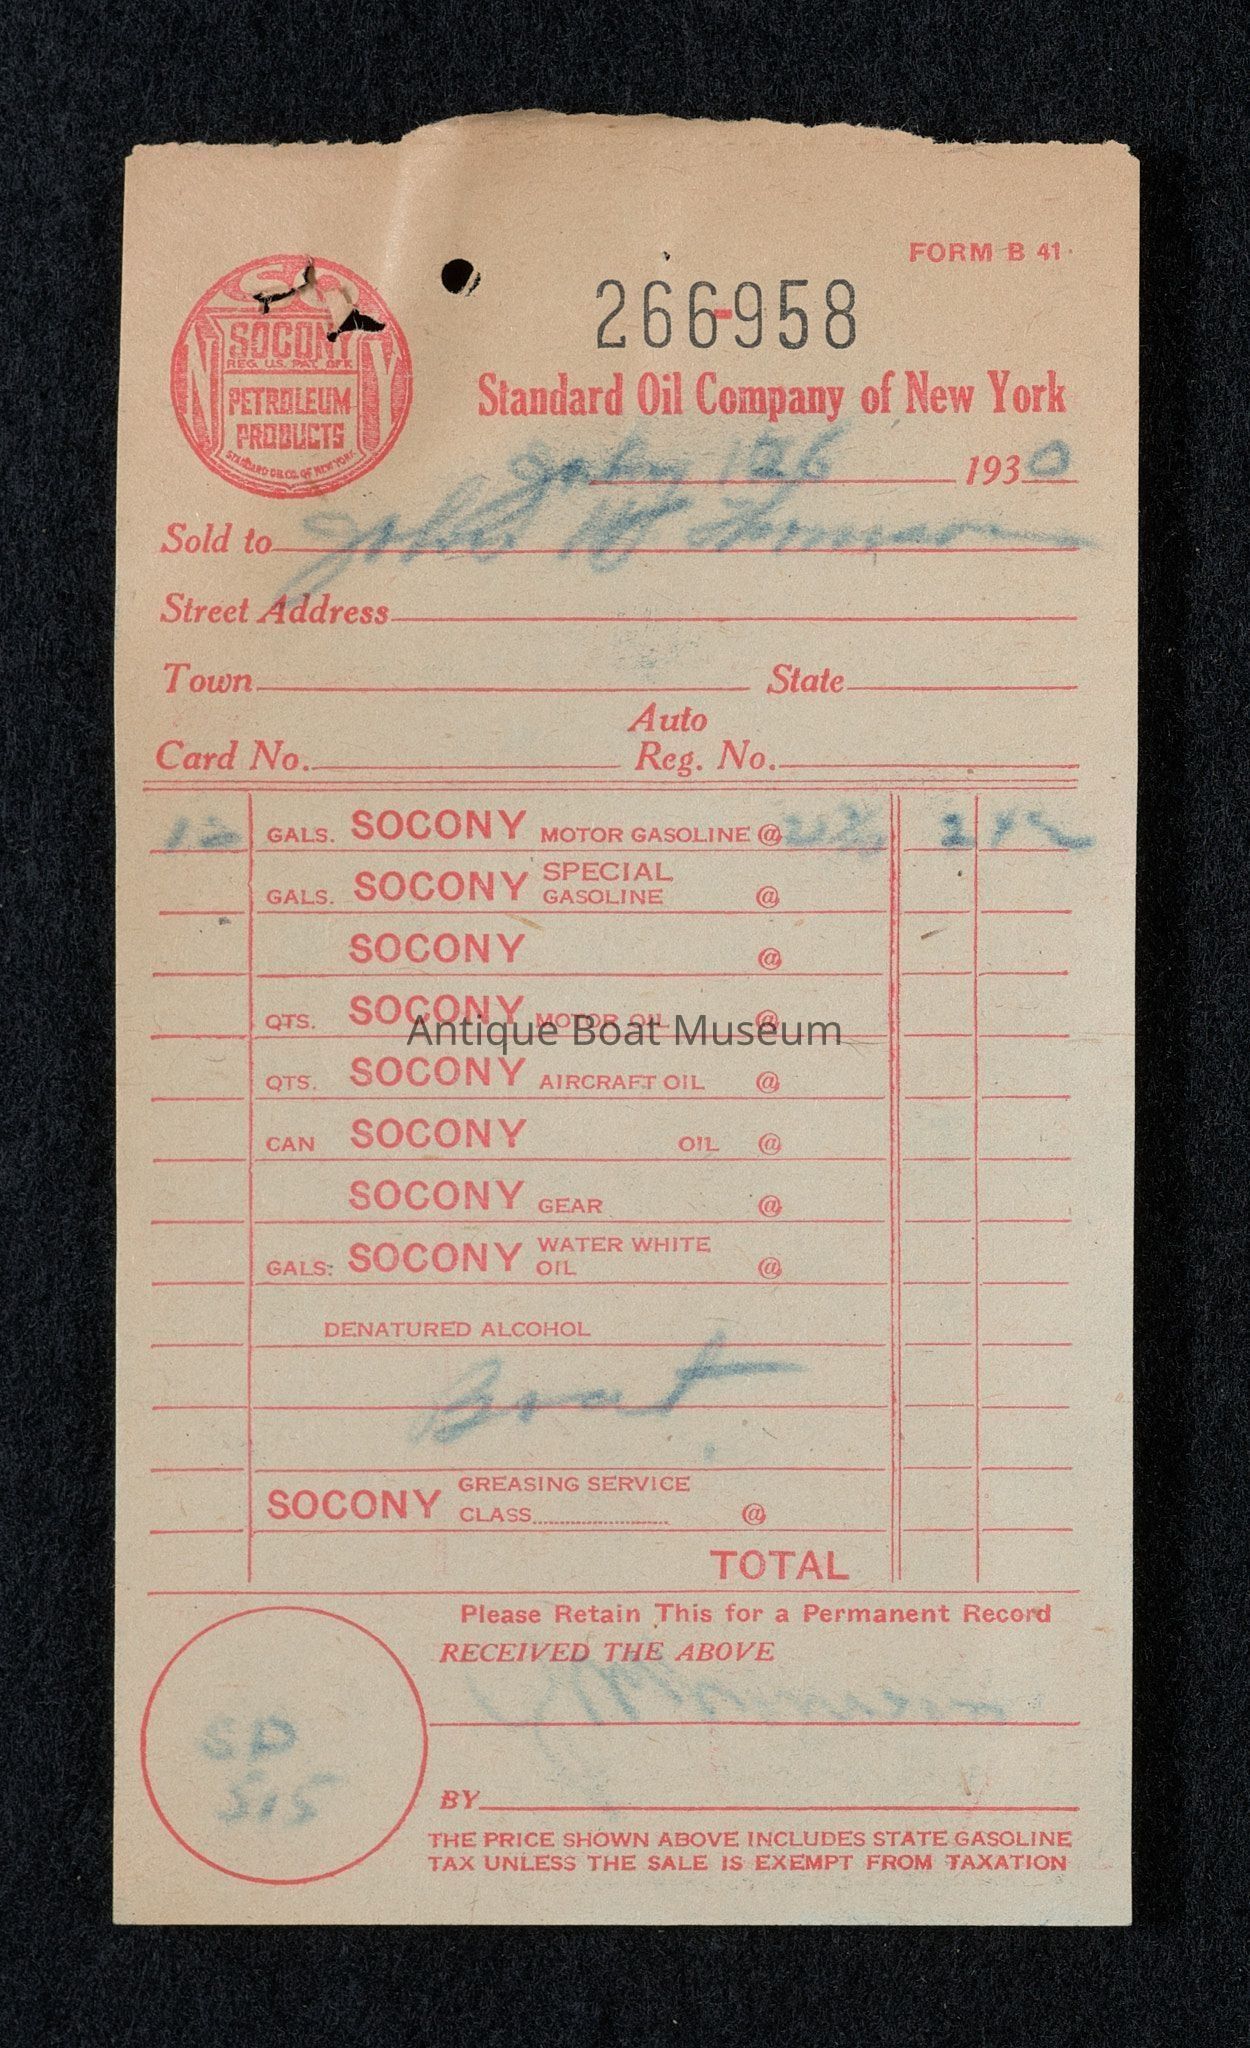 FORM B 41
266-958
SO
N Y
SOCONY
REG. U.S. PAT. OFF.
PETROLEUM
PRODUCTS
STANDARD OIL CO. OF NEW YORK
Standard Oil Company of New York
July 1930
Sold to John W
Street Address
Town State
Auto
Card No. Reg. No.
12 GALS. SOCONY MOTOR GASOLINE @
GALS. SOCONY SPECIAL GASOLINE @
SOCONY @
QTS. SOCONY MOTOR OIL @
Antique Boat Museum
QTS. SOCONY AIRCRAFT OIL @
CAN SOCONY OIL @
SOCONY GEAR @
GALS. SOCONY WATER WHITE OIL @
DENATURED ALCOHOL
Boat
SOCONY GREASING SERVICE
CLASS @
TOTAL
Please Retain This for a Permanent Record
RECEIVED THE ABOVE
BY
THE PRICE SHOWN ABOVE INCLUDES STATE GASOLINE
TAX UNLESS THE SALE IS EXEMPT FROM TAXATION